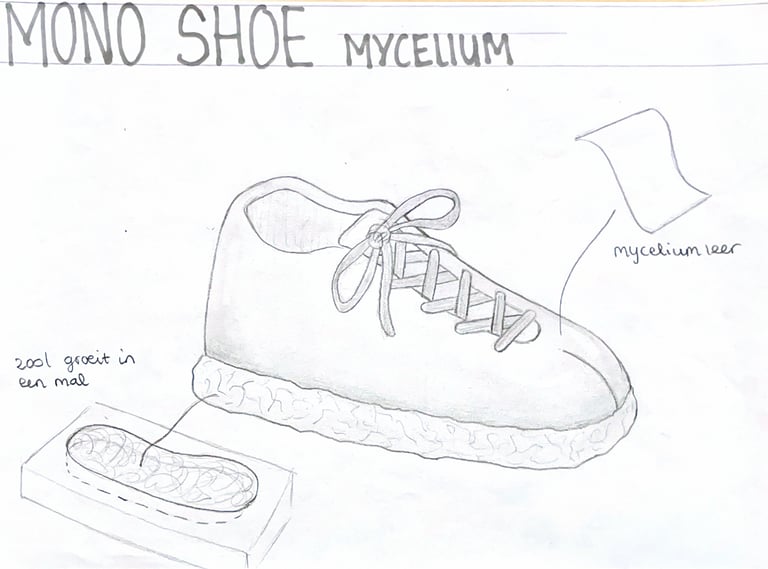 MONO SHOE MYCELIUM
myceliumleer
zool groeit in
een mal